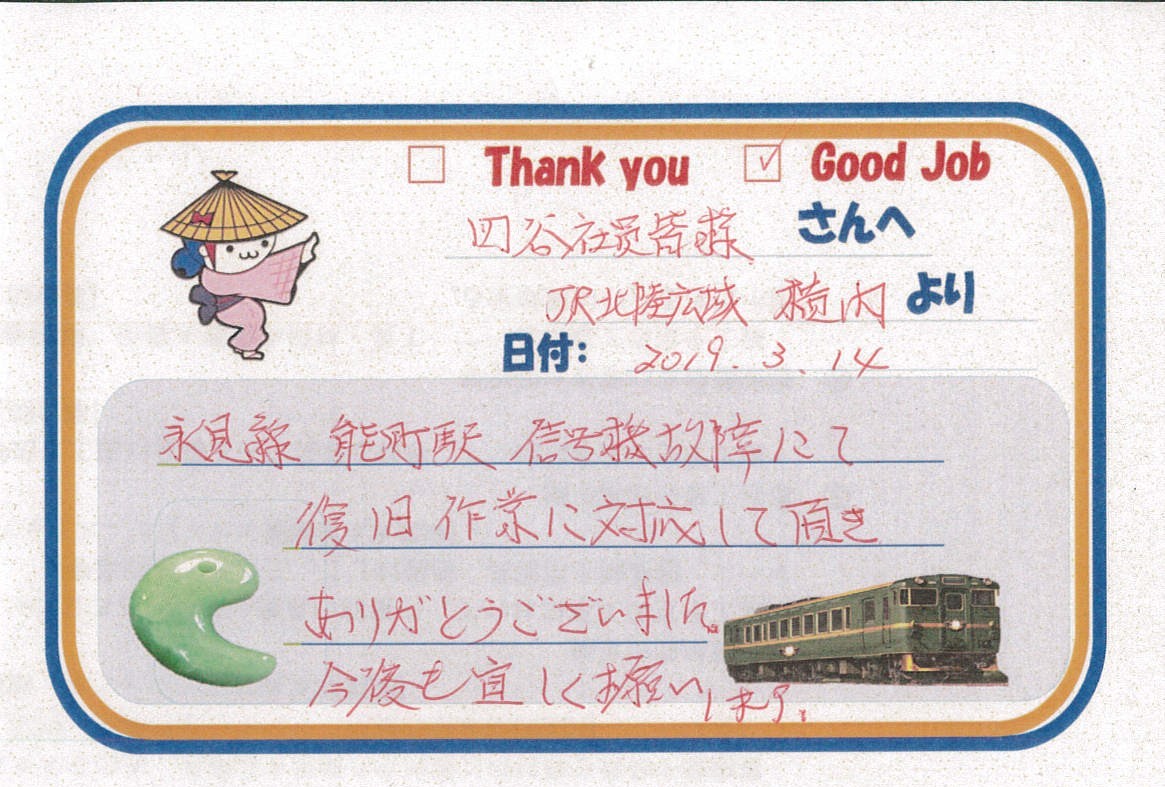 Thank you ✓ Good Job
四谷社員皆様 さんへ
JR北陸広域 横内 より
日付: 2019.3.14
氷見線 能町駅 信号機故障にて
復旧作業に対応して頂き
ありがとうございました。
今後も宜しくお願いします。